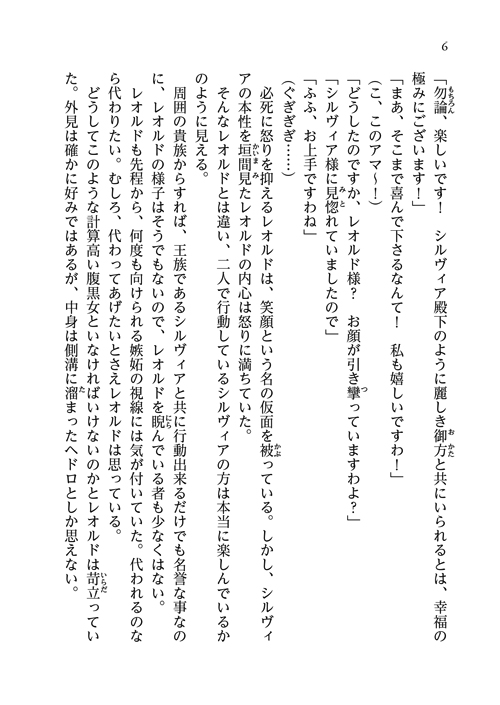 6
「勿論、楽しいです！　シルヴィア殿下のように麗しき御方と共にいられるとは、幸福の
極みにございます！」
「まあ、そこまで喜んで下さるなんて！　私も嬉しいですわ！」
（こ、このアマ～！）
「どうしたのですか、レオルド様？　お顔が引き攣っていますわよ？」
「シルヴィア様に見惚れていましたので」
「ふふ、お上手ですわね」
（ぐぎぎぎ……）
　必死に怒りを抑えるレオルドは、笑顔という名の仮面を被っている。しかし、シルヴィ
アの本性を垣間見たレオルドの内心は怒りに満ちていた。
　そんなレオルドとは違い、二人で行動しているシルヴィアの方は本当に楽しんでいるか
のように見える。
　周囲の貴族からすれば、王族であるシルヴィアと共に行動出来るだけでも名誉な事なの
に、レオルドの様子はそうでもないので、レオルドを睨んでいる者も少なくはない。
　レオルドも先程から、何度も向けられる嫉妬の視線には気が付いていた。代われるのな
ら代わりたい。むしろ、代わってあげたいとさえレオルドは思っている。
　どうしてこのような計算高い腹黒女といなければいけないのかとレオルドは苛立ってい
た。外見は確かに好みではあるが、中身は側溝に溜まったヘドロとしか思えない。